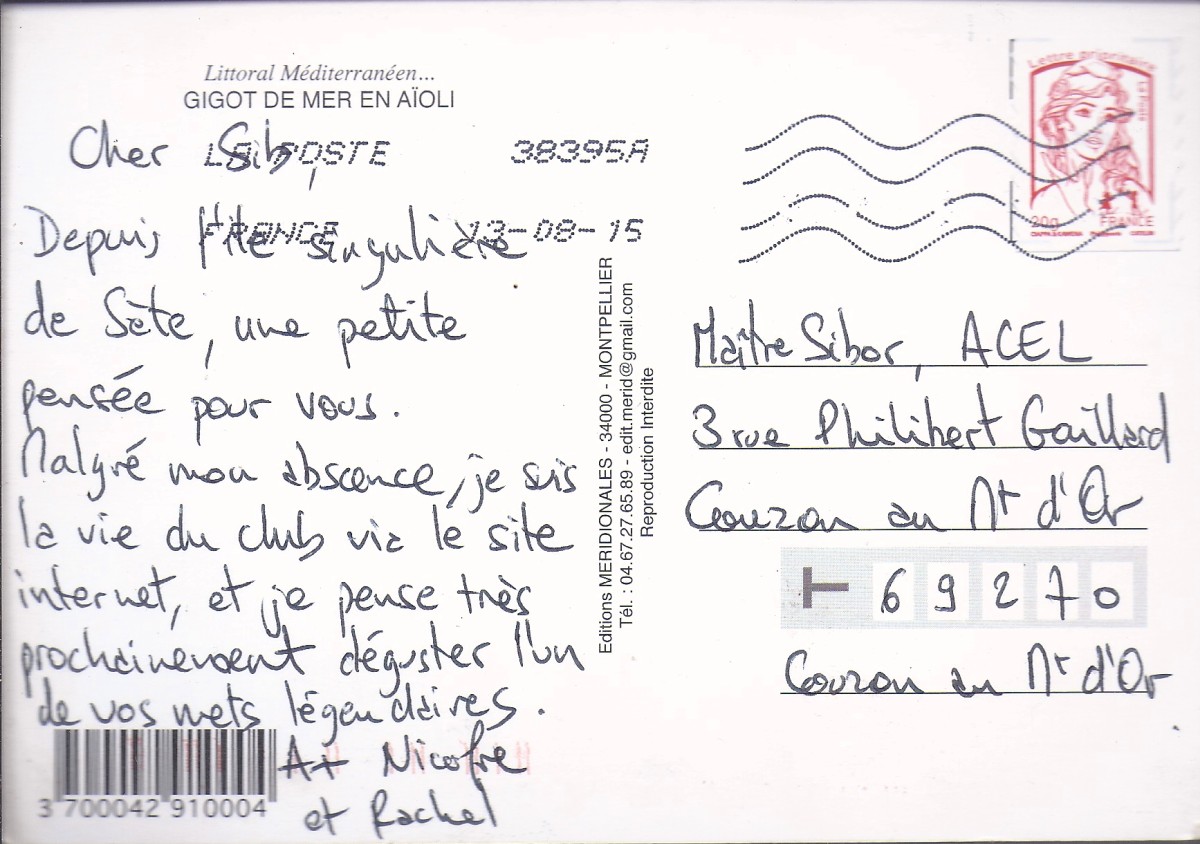 Littoral Méditerranéen...
GIGOT DE MER EN AÏOLI
LA POSTE 38395A
FRANCE 13-08-15
Cher Sib,
Depuis l'île singulière
de Sète, une petite
pensée pour vous.
Malgré mon abscence, je suis
la vie du club via le site
internet, et je pense très
prochainement déguster l'un
de vos mets légendaires.
A+ Nicofre
et Rachel
3 700042 910004
Editions MERIDIONALES - 34000 - MONTPELLIER
Tél. : 04.67.27.65.89 - edit.merid@gmail.com
Reproduction Interdite
Lettre prioritaire
La Poste
20g
FRANCE
Maître Sibor, ACEL
3 rue Philibert Gaillard
Couzon au Mt d'Or
69270
Couzon au Mt d'Or